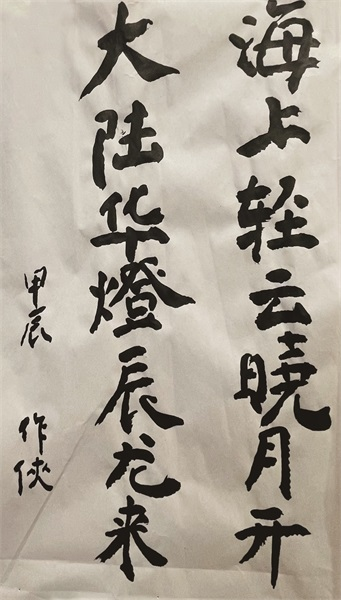 海上轻云晓月开
大陆华燈辰龙来
甲辰 作侠